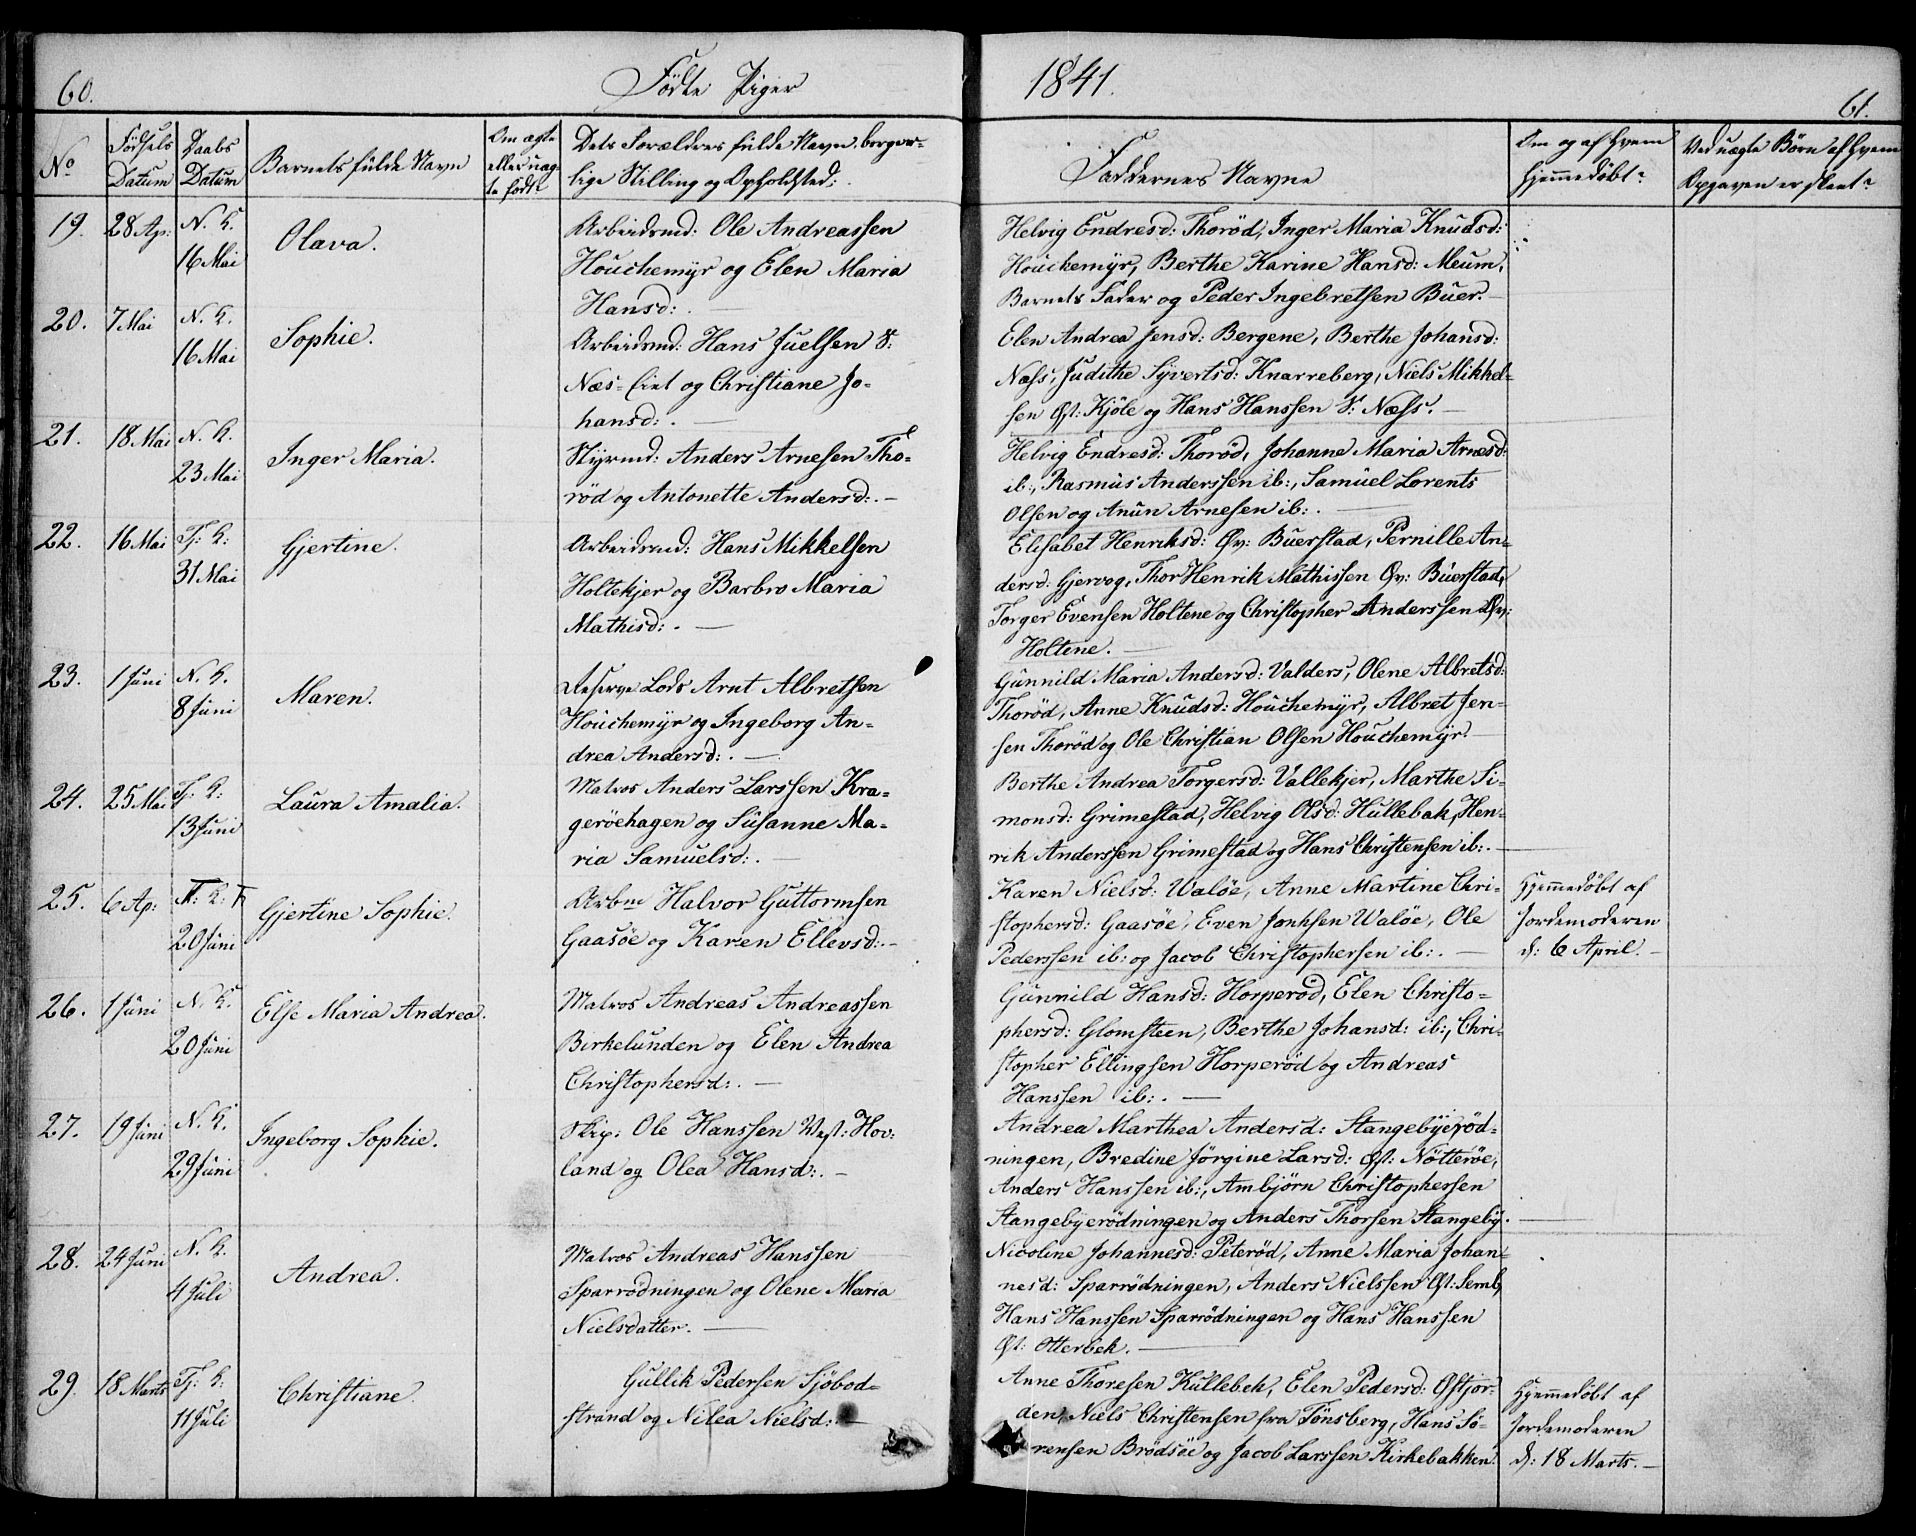 60.
Födte Piger
1841.
61.
No
Födsels Datum
Daabs Datum
Barnets fulde Navn
Om ægte eller uægte födt
Dets Forældres fulde Navn, borgerlige Stilling og Opholdsted:
Faddernes Navne
Om og af hvem hjemmedöbt?
Ved uægte Börn af hvem Opgaven er skeet?
19.
28 Ap:
N. K.
16 Mai
Olava.
Arbeidsmd: Ole Andreassen
Houchemÿr og Elen Maria
Hansd: . —
Helvig Endresd: Thoröd, Inger Maria Knudsd:
Houchemÿr, Berthe Karine Hansd: Meum,
Barnets Fader og Peder Ingebretsen Buer. —
20.
7 Mai
N. K.
16 Mai
Sophie.
Arbeidsmd: Hans Juelsen S:
Næs-Eiet og Christiane Jo-
hansd: . —
Elen Andrea Jensd: Bergene, Berthe Johansd:
Næss, Judithe Sÿvertsd: Knarreberg, Niels Mikkel-
sen Øst: Kjöle og Hans Hanssen S: Næss. —
21.
18 Mai
N. K.
23 Mai
Inger Maria.
Stÿrmd: Anders Arnesen Tho-
röd og Antonette Andersd: . —
Helvig Endresd: Thoröd, Johanne Maria Arnesd:
ib:, Rasmus Anderssen ib:, Samuel Lorents
Olsen og Anun Arnesen ib: . —
22.
16 Mai
Tj: K:
31 Mai
Gjertine.
Arbeidsmd: Hans Mikkelsen
Holtekjer og Barbro Maria
Mathisd: . —
Elisabet Henriksd: Øv: Buerstad, Pernille An-
dersd: Gjervog, Thor Henrik Mathissen Øv: Buerstad,
Torger Evensen Holtene og Christopher Anderssen Øv:
Holtene. —
23.
1 Juni
N. K.
8 Juni
Maren.
Reserve Lods Arnt Albretsen
Houchemÿr og Ingeborg An-
drea Andersd: . —
Gunnild Maria Andersd: Valders, Olene Albretsd:
Thoröd, Anne Knudsd: Houchemÿr, Albret Jen-
sen Thoröd og Ole Christian Olsen Houchemÿr. —
24.
25 Mai
Tj: K:
13 Juni
Laura Amalia.
Matros Anders Larssen Kra-
geröehagen og Susanne Ma-
ria Samuelsd: . —
Berthe Andrea Torgersd: Vallekjer, Marthe Si-
monsd: Grimestad, Helvig Olsd: Hullebak, Hen-
rik Anderssen Grimestad og Hans Christensen ib: . —
25.
6 Ap:
20 Juni
Gjertine Sophie.
Arbm Halvor Guttormsen
Gaasöe og Karen Ellevsd: . —
Karen Nielsd: Walöe, Anne Martine Chri-
stophersd: Gaasöe, Even Walöe, Ole
Pederssen ib: og Jacob Christophersen ib: . —
Hjemmedöbt af
Jordemoderen
d: 6 April. —
26.
1 Juni
N. K.
20 Juni
Else Maria Andrea.
Matros Andreas Andreassen
Birkelunden og Elen Andrea
Christophersd: . —
Gunnild Hansd: Horperöd, Elen Christo-
phersd: Glomsteen, Berthe Johansd: ib:, Chri-
stopher Ellingsen Horperöd og Andreas
Hanssen ib: . —
27.
19 Juni
N. K.
29 Juni
Ingeborg Sophie.
Skip: Ole Hanssen Vest: Hov-
land og Olea Hansd: . —
Andrea Marthea Andersd: Stangebÿeröd-
ningen, Bredine Jörgine Larsd: Øst: Nötteröe,
Anders Hanssen ib:, Ambjörn Christophersen
Stangebÿerödningen og Anders Thorsen Stangebÿ. —
28.
24 Juni
N. K.
4 Juli
Andrea.
Matros Andreas Hanssen
Sparrödningen og Olene Maria
Nielsdatter. —
Nicoline Johannesd: Peteröd, Anne Maria Johan-
nesd: Sparrödningen, Anders Nielssen Øst: Semb,
Hans Hanssen Sparrödningen og Hans Hanssen
Øst: Otterbek. —
29.
18 Marts
Tj: K:
11 Juli
Christiane.
Gullik Pedersen Sjöbod-
strand og Nilea Nielsd: —
Anne Thoresen Kullebek, Elen Pedersd: Østjor-
den, Niels Christensen fra Tönsberg, Hans Sö-
rensen Brödsöe og Jacob Larssen Kirkebakken.
Hjemmedöbt af
Jordemoderen
d: 18 Marts. —